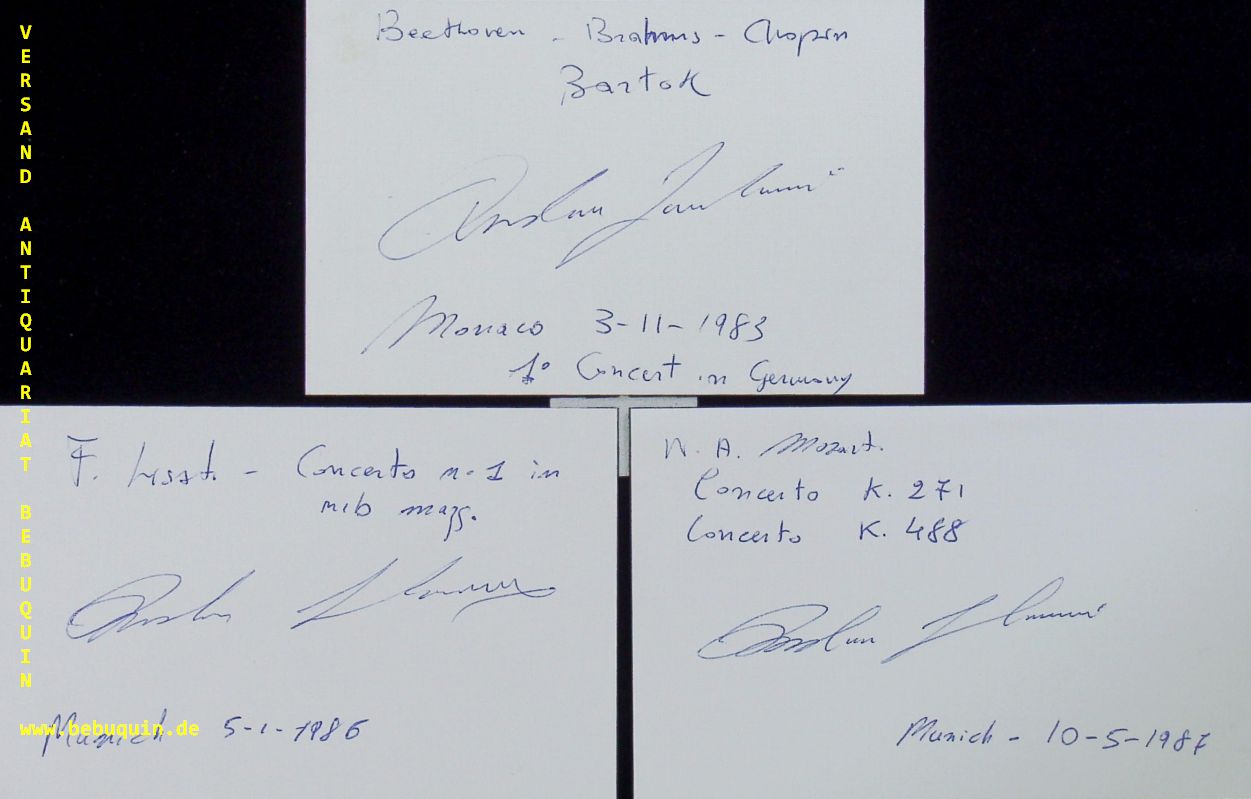 Beethoven - Brahms - Chopin
Bartok
Monaco 3-11-1983
1° Concert in Germany
F. Liszt. - Concerto n. 1 in
mib magg.
Munich 5-1-1986
W. A. Mozart.
Concerto K. 271
Concerto K. 488
Munich - 10-5-1987
VERSAND ANTIQUARIAT BEBUQUIN
www.bebuquin.de